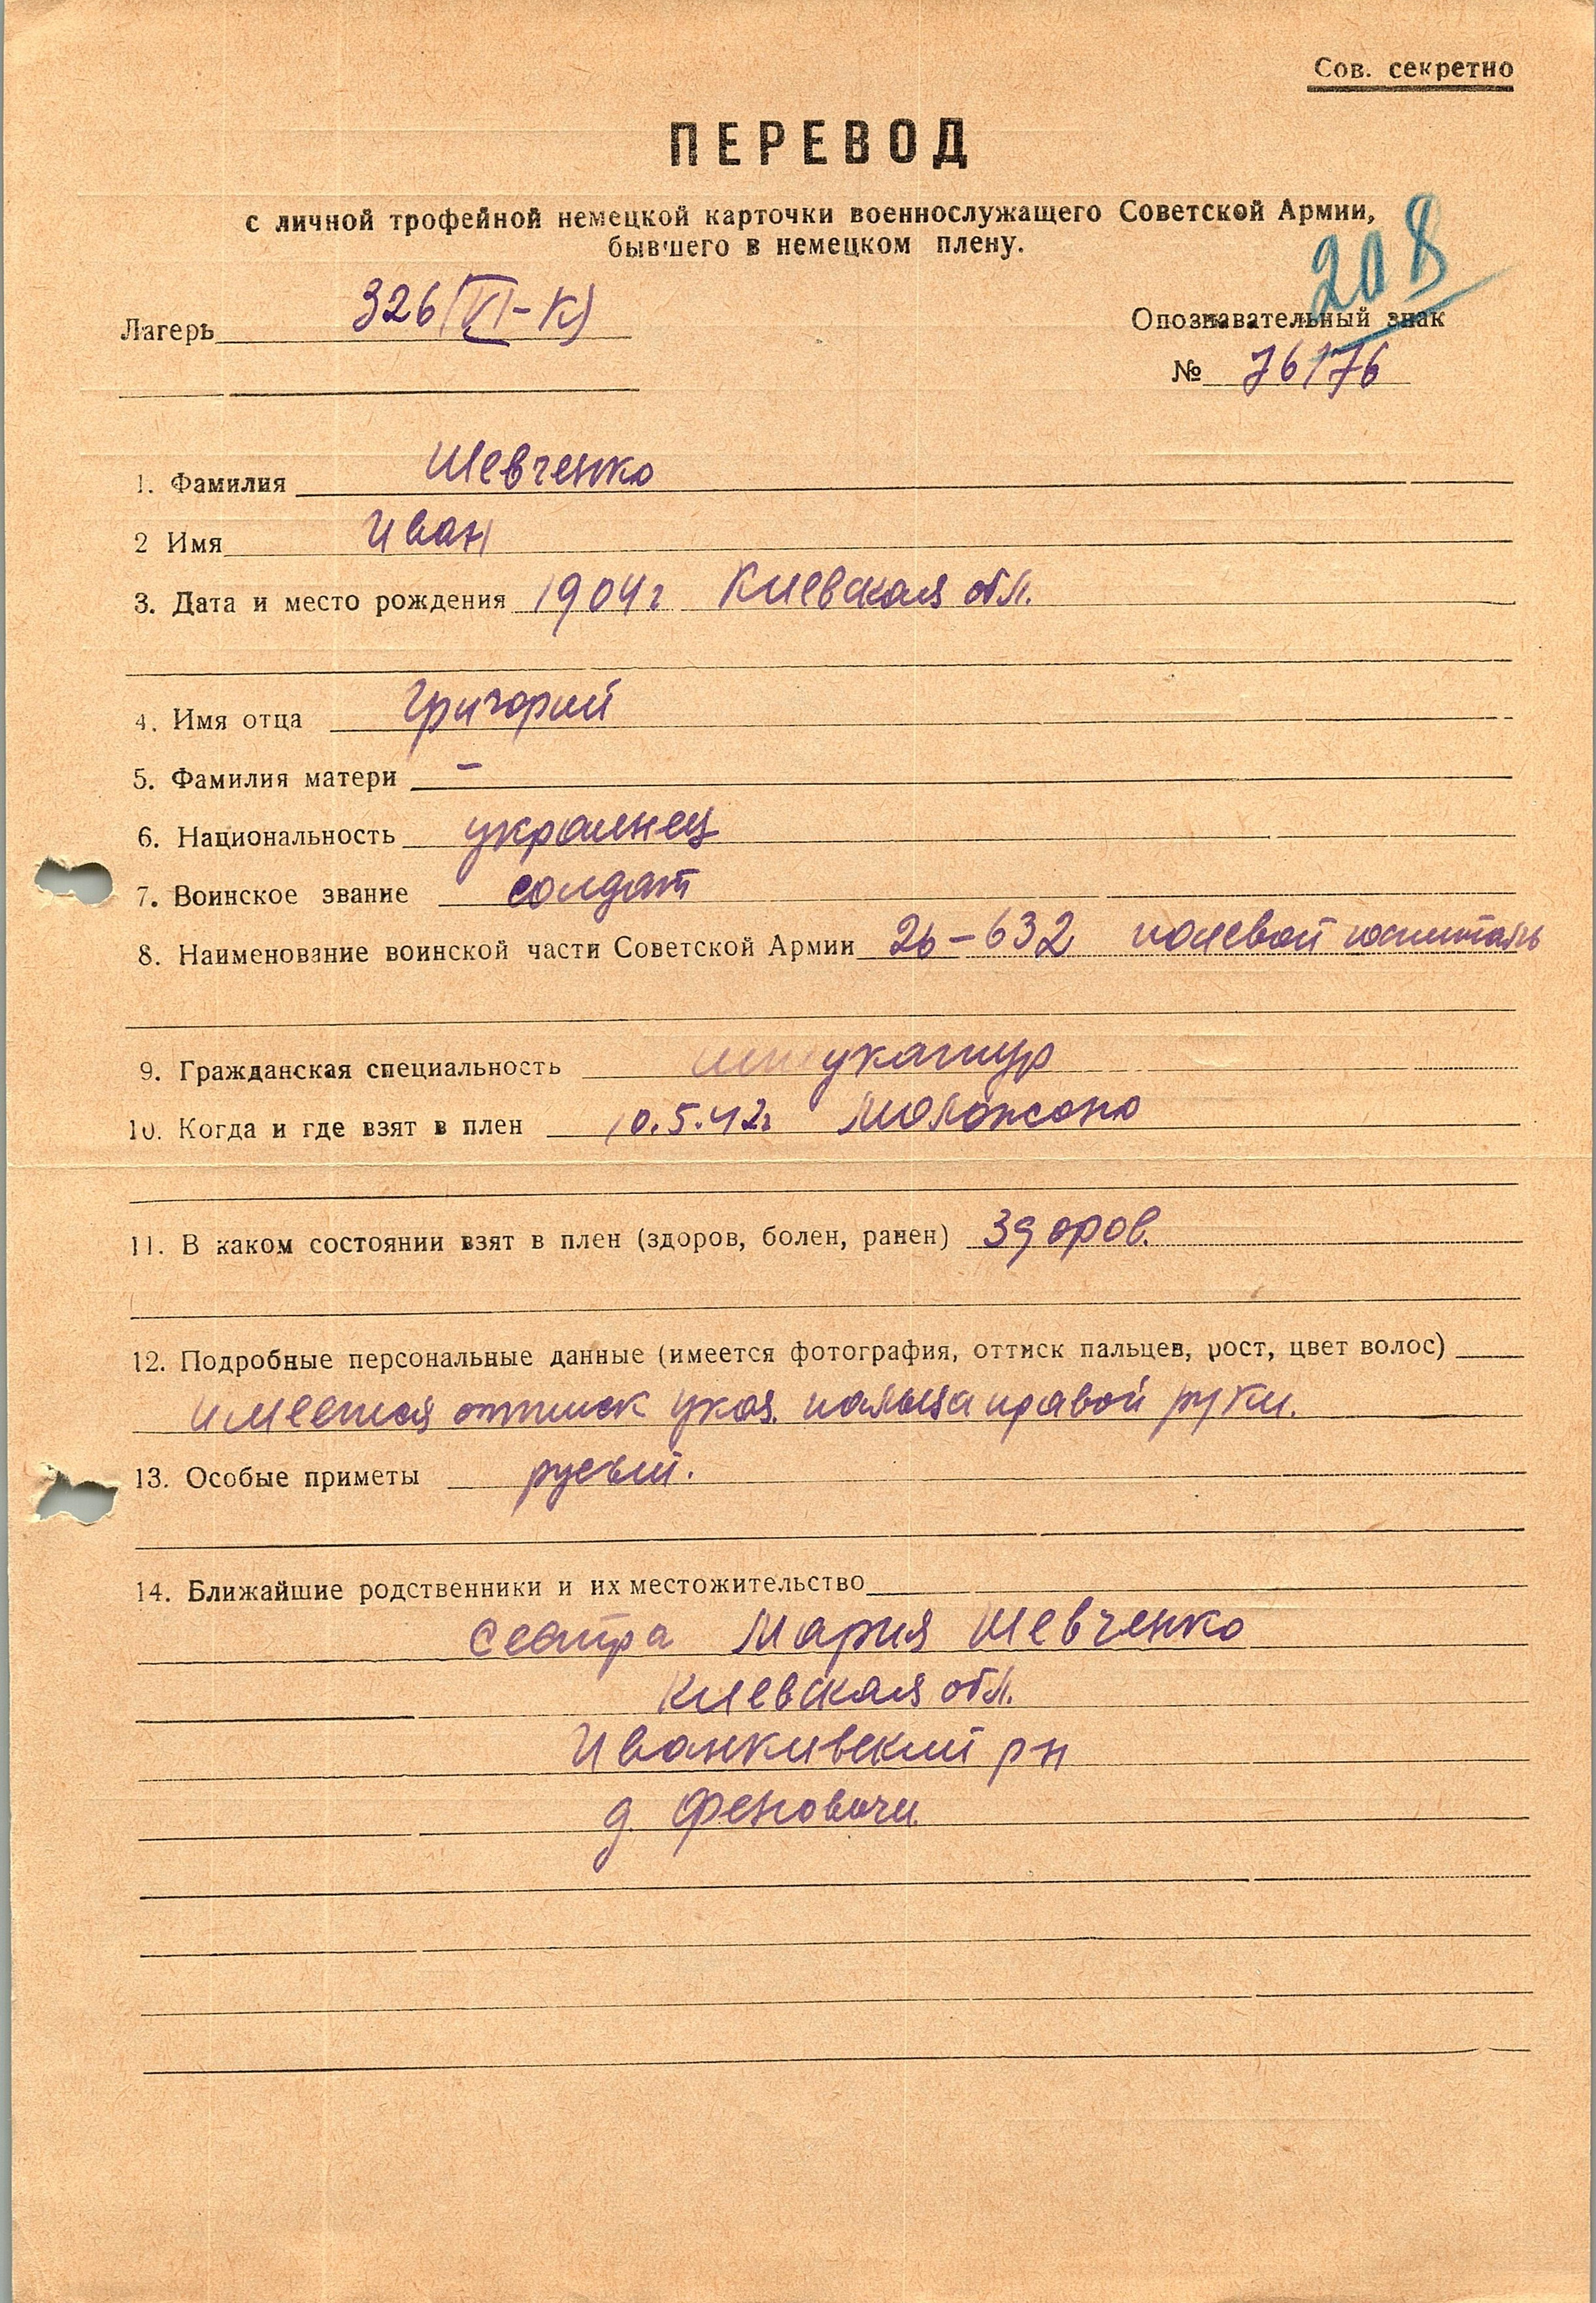 Сов. секретно
ПЕРЕВОД
с личной трофейной немецкой карточки военнослужащего Советской Армии,
бывшего в немецком плену.
208
Лагерь 326 (VI-К)
Опознавательный знак
№ 76176
1. Фамилия Шевченко
2 Имя Иван
3. Дата и место рождения 1904 г Киевская обл.
4. Имя отца Григорий
5. Фамилия матери –
6. Национальность украинец
7. Воинское звание солдат
8. Наименование воинской части Советской Армии 26-632 полевой госпиталь
9. Гражданская специальность штукатур
10. Когда и где взят в плен 10.5.42г
11. В каком состоянии взят в плен (здоров, болен, ранен) здоров.
12. Подробные персональные данные (имеется фотография, оттиск пальцев, рост, цвет волос)
имеется оттиск указ. пальца правой руки.
13. Особые приметы русый.
14. Ближайшие родственники и их местожительство
сестра Мария Шевченко
Киевская обл.
Иванкивский рн
д. Феновичи